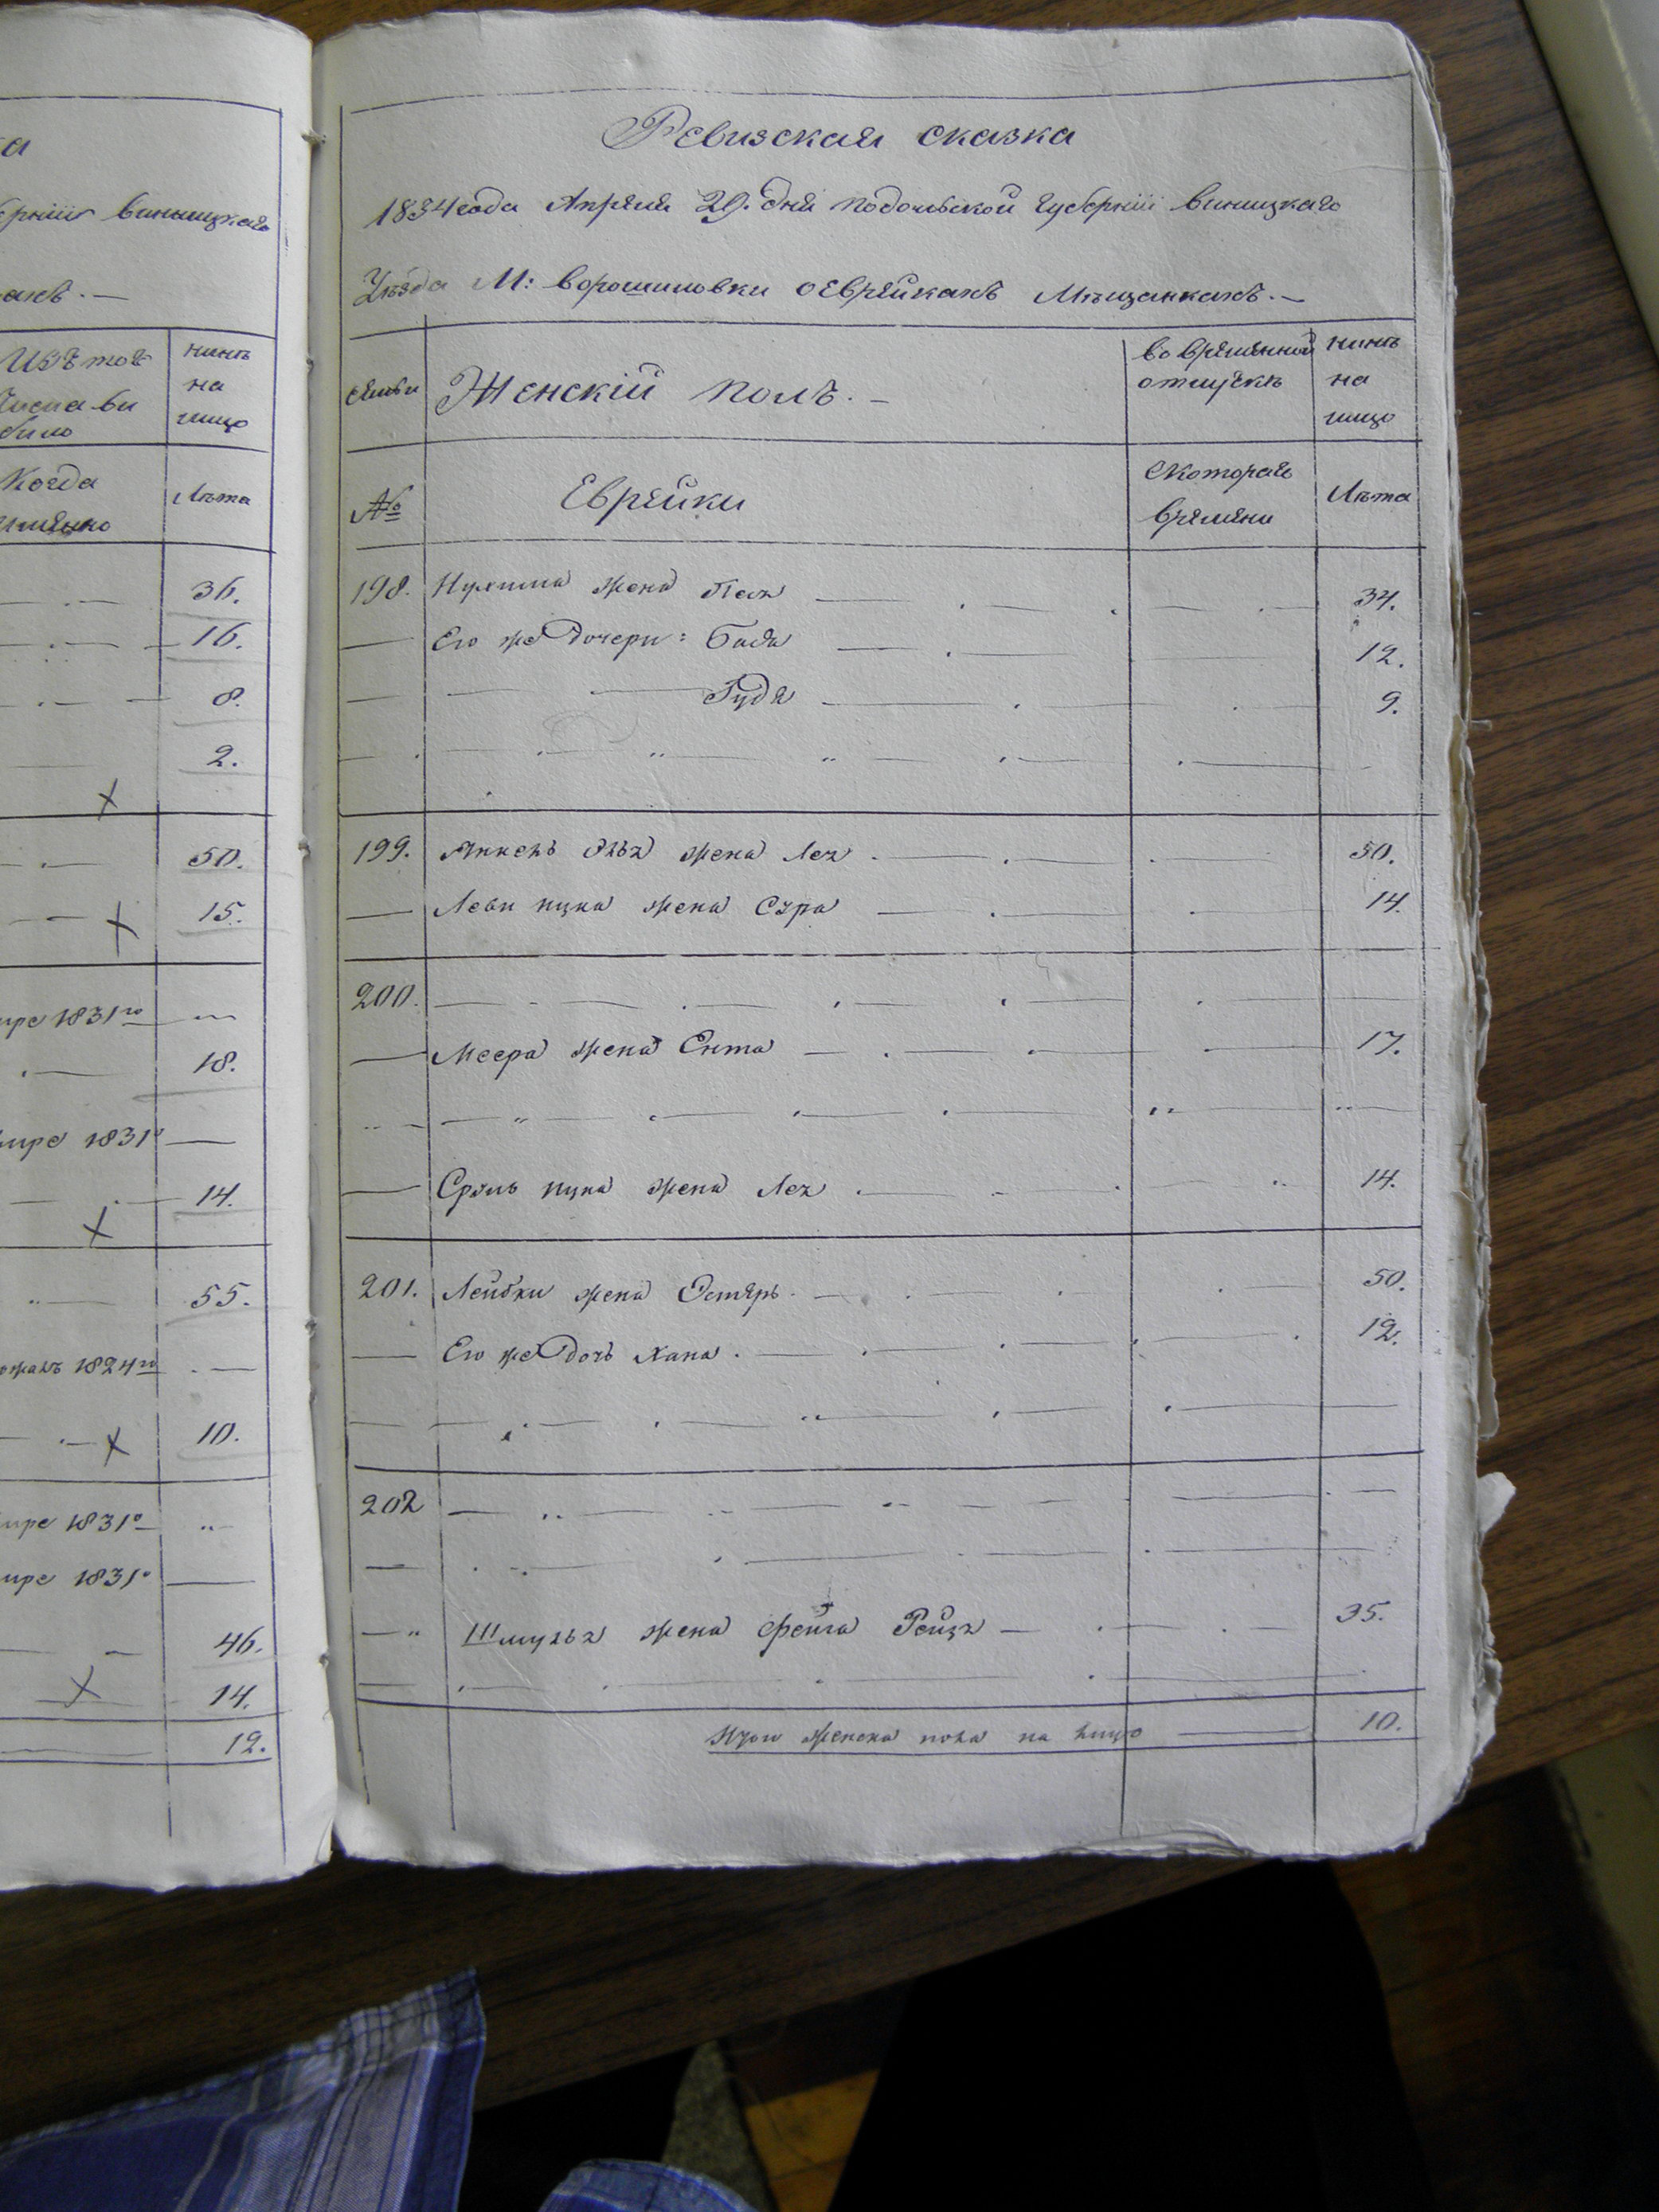 а
ерніи винницкаго
ахъ. —
Изъ того
числа вы
было
нынѣ
на
лицо
Когда
имянно
Лѣта
36.
16.
8.
2.
50.
15.
1831го
18.
1831го
14.
55.
1824го
10.
1831го
1831го
46.
14.
12.
Ревизская сказка
1834 года Апреля 29. дня подольской губерніи виницкаго
Уѣзда М: ворошиловки о Еврейкахъ Мѣщанкахъ. —
семьи
Женскій полъ. —
во врѣмянной
отлучкѣ
нынѣ
на
лицо
№
Еврейки
Скотораго
врѣмяни
Лѣта
198. жена 34.
— Его же дочери: Бася 12.
— — Гудя 9.
199. жена Лея 50.
— Леви жена Сура 14.
200.
— Меера жена Ента 17.
— Сруль жена Лея 14.
201. Лейбки жена Эстеръ. 50.
— Его же дочь Хана. 12.
202
— Шмуля жена фейга Рейзя — 35.
Итого женска пола на лицо — 10.